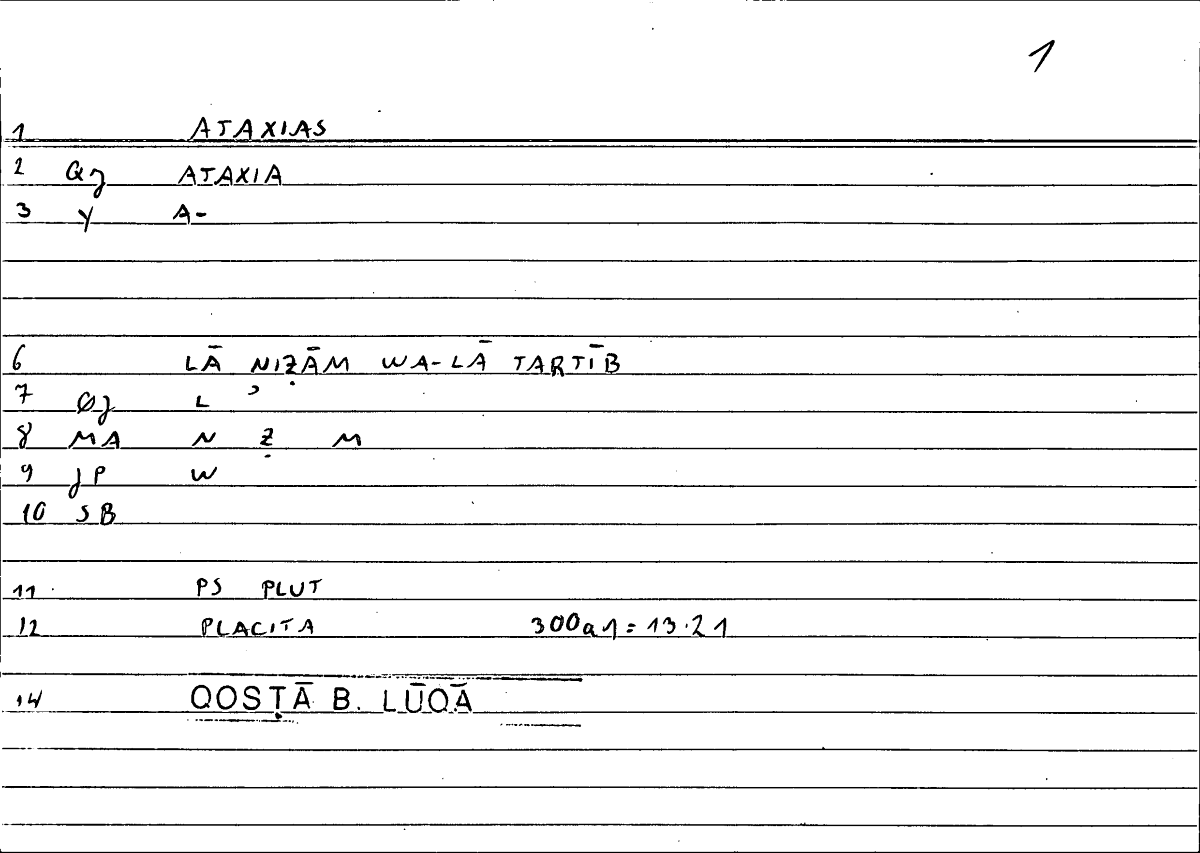 1
1 ATAXIAS
2 Gj ATAXIA
3 Y A-
6 LĀ NIẒĀM WA-LĀ TARTĪB
7 Øj L ʾ
8 MA N Ẓ M
9 jP W
10 SB
11 PS PLUT
12 PLACITA 300a1=13.21
14 QOSṬĀ B. LŪQĀ